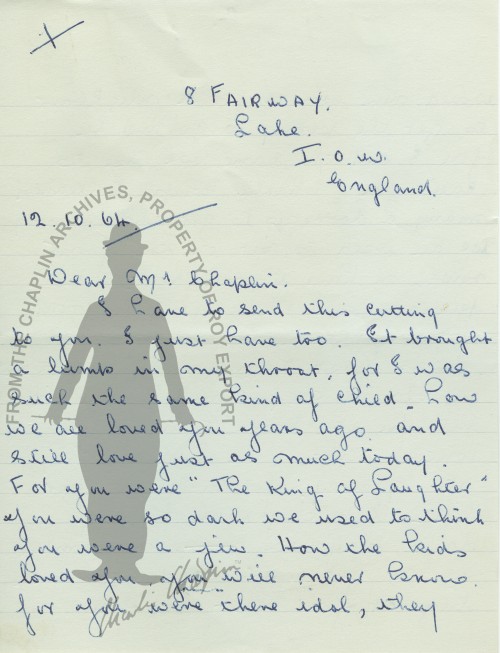 8 FAIRWAY.
Lake.
I.O.W.
England.
12.10.64.
FROM THE CHAPLIN ARCHIVES, PROPERTY OF ROY EXPORT
Dear Mr Chaplin.
I have to send this cutting
to you. I just have too. It brought
a lump in my throat, for I was
such the same kind of child. how
we all loved you years ago and
still love just as much today.
For you were "The King of Laughter"
you were so dark we used to think
you were a jew. How the kids
loved you you will never know.
for you were there idol, they
Charlie Chaplin